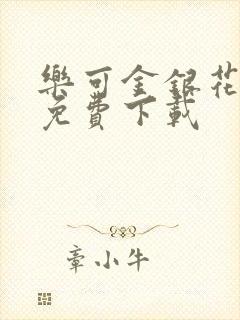 樂可金銀花
免費下載
章小牛